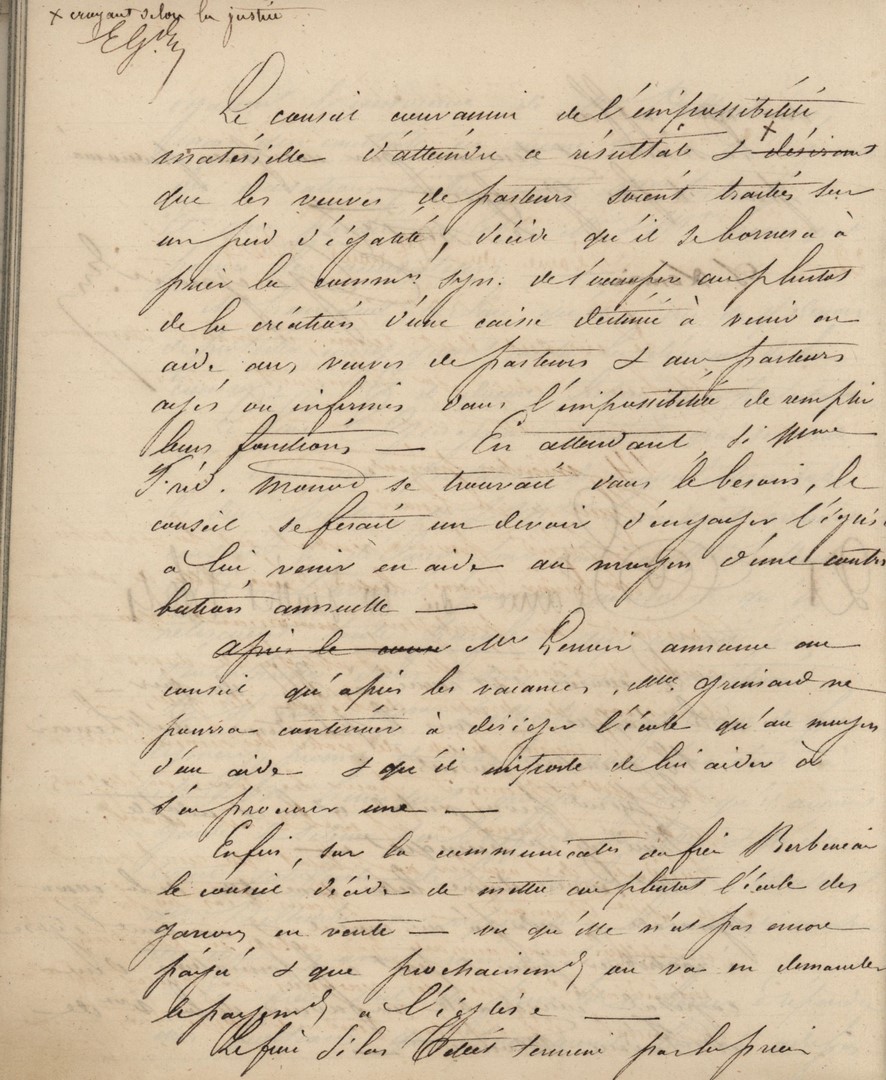 x croyant selon la justice
Le conseil convaincu de l'impossibilité
matérielle d'attendre ce résultat & x désirant
que les veuves de pasteurs soient traitées sur
un pied d'égalité, décide qu'il se bornera à
prier la common syn. de s'occuper au plutot
de la création d'une caisse destinée à venir en
aide aux veuves de pasteurs & aux pasteurs
agés ou infirmes dans l'impossibilité de remplir
leurs fonctions — En attendant, si Mme
Fréd. Monod se trouvait dans le besoin, le
conseil se ferait un devoir d'engager l'église
à lui venir en aide au moyen d'une contri
bution annuelle —
Après le Mr Lenoir annonce au
conseil qu'après les vacances, Mme ne
pourra continuer à diriger l'école qu'au moyen
d'un aide & qu'il importe de lui aider à
s'en procurer une —
Enfin, sur la communicaton du frère
le conseil décide de mettre au plutot l'école des
garçons en vente — vu qu'elle n'est pas encore
payée & que prochainemt on va en demander
le payemt à l'église —
Le frère Silas terminé par la prière